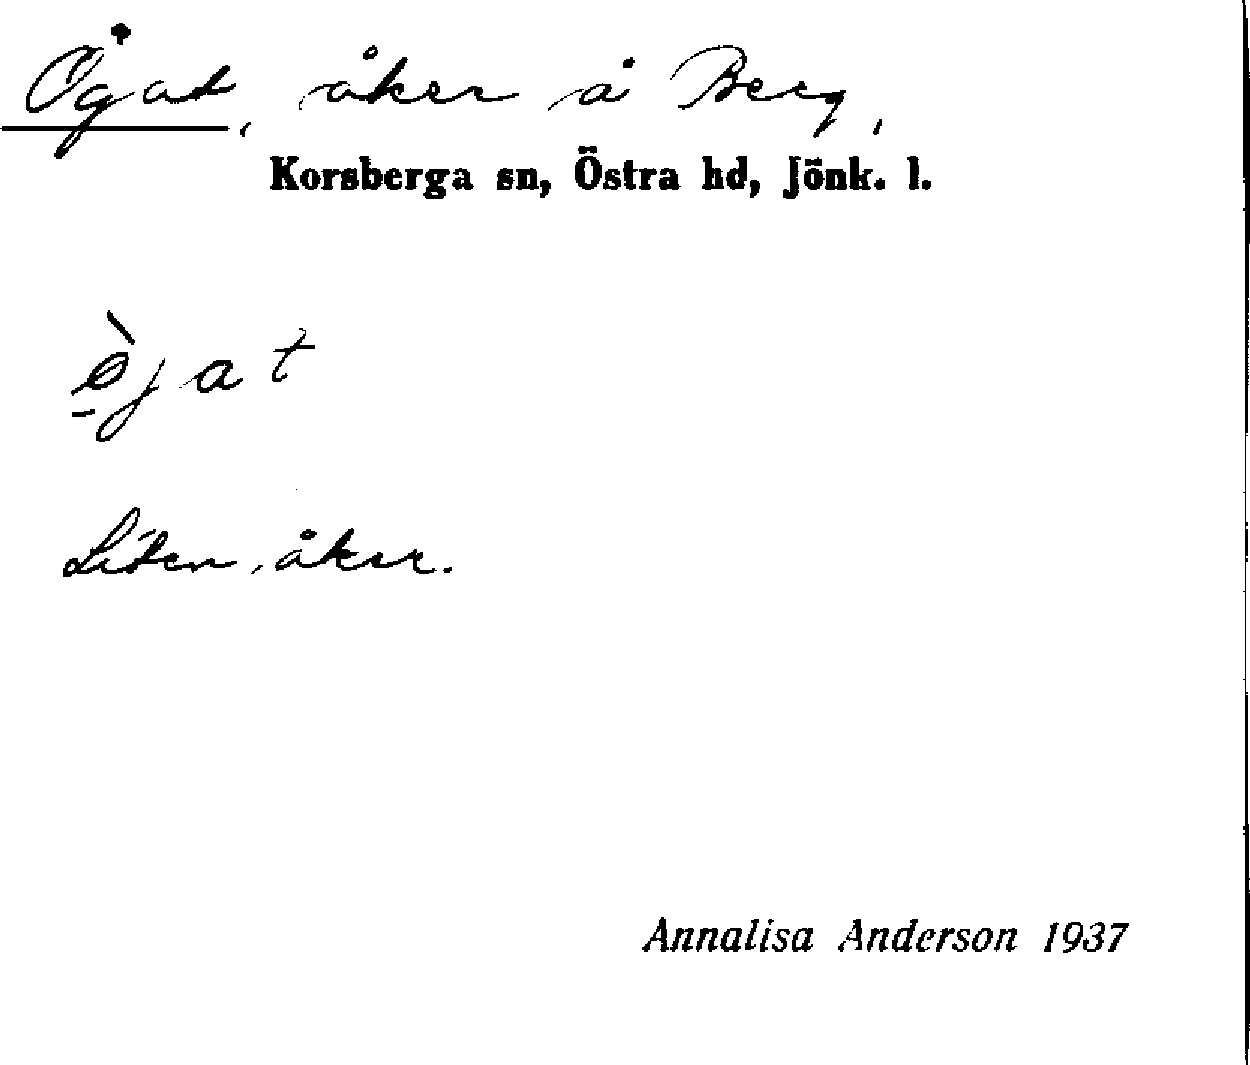 Ögat, åker å Berg,
Korsberga sn, Östra hd, Jönk. l.
ø̠̀jat
Liten åker.
Annalisa Anderson 1937